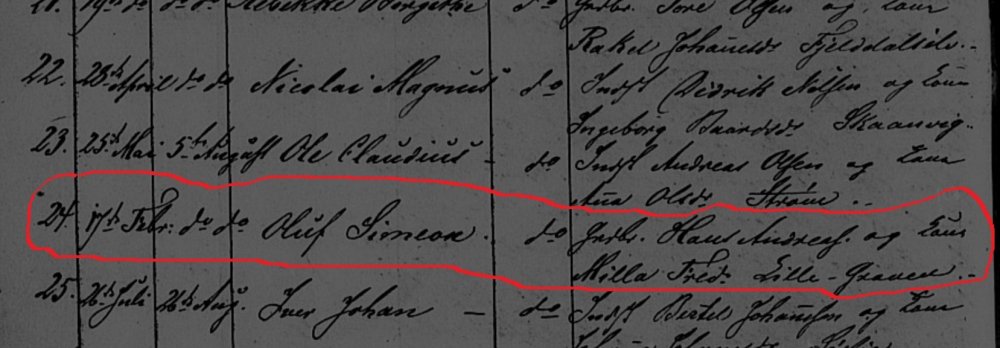 21. 19de do do do Rebekke Bergethe do Grdbr. Tore Olsen og Kone
Rakel Johannesdr Fjelddalselv.
22. 28de April do do Nicolai Magnus do Indst Didrik Nilsen og Kone
Ingeborg Baardsdr Skaanvig.
23. 25de Mai 5te August Ole Claudius - do Indst Andreas Olsen og Kone
Ana Olsdr Strøm.
24. 17de Febr. do do Oluf Simeon. do Grdbr. Hans Andreas. og Kone
Milla Fredr Lille-Graven.
25. 26de Juli 26de Aug. Iver Johan - do Indst Bertel Johannesen og Kone